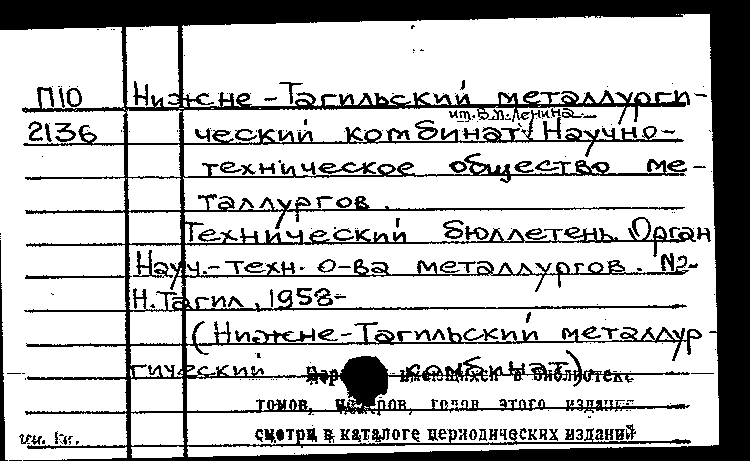 П10 Нижне-Тагильский металлурги-
им. В.И. Ленина
2136 ческий комбинат. Научно-
техническое общество ме-
таллургов.
Технический бюллетень. Орган
Науч.-техн. о-ва металлургов. №2-
Н. Тагил, 1958-
(Нижне-Тагильский металлур-
гический комбинат)
имеющихся в библиотеке
томов, номеров, годов этого издания
смотри в каталоге периодических изданий